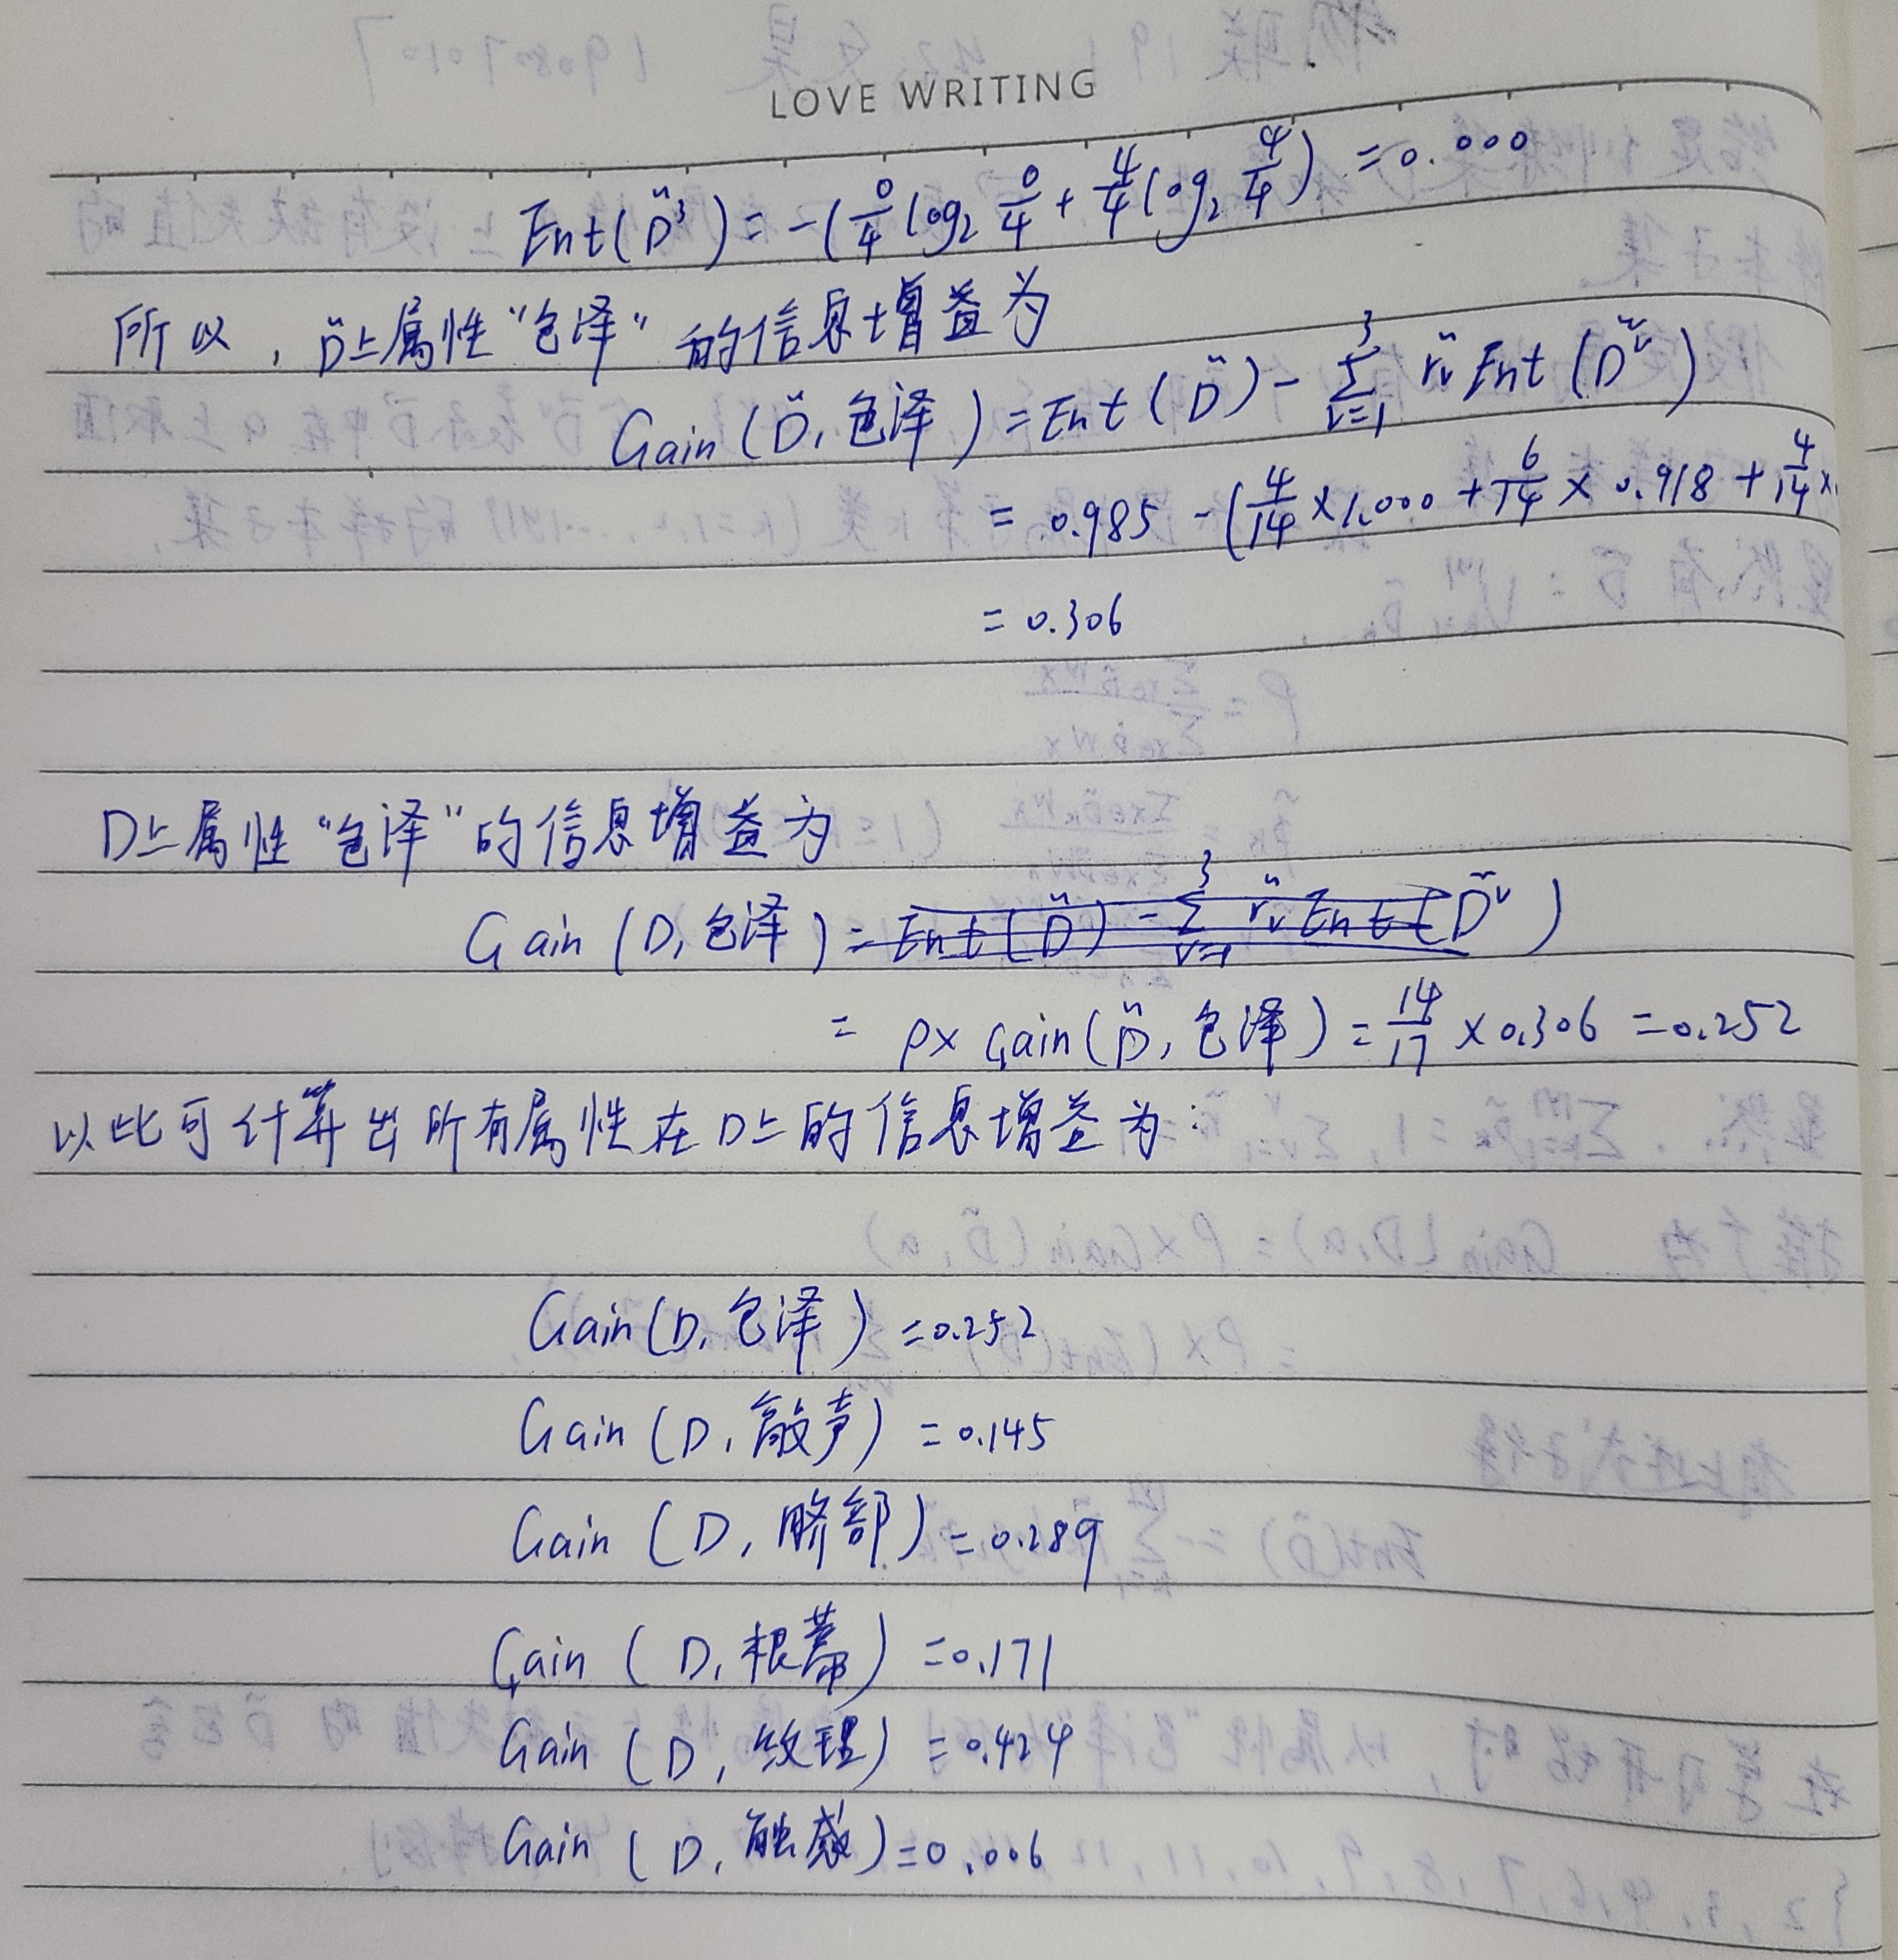 LOVE WRITING
Ent(D̃³) = -(0/4 log₂ 0/4 + 4/4 log₂ 4/4) = 0.000
所以，D̃上属性"色泽"的信息增益为
Gain(D̃, 色泽) = Ent(D̃) - Σ_{v=1}^{3} r̃ᵥ Ent(D̃ᵛ)
= 0.985 - (4/14 × 1.000 + 6/14 × 0.918 + 4/14 ×
= 0.306
D上属性"色泽"的信息增益为
Gain(D, 色泽) = Ent(D̃) - Σ_{v=1}^{3} r̃ᵥ Ent(D̃ᵛ)
= ρ× Gain(D̃, 色泽) = 14/17 × 0.306 = 0.252
以此可计算出所有属性在D上的信息增益为：
Gain(D, 色泽) = 0.252
Gain(D, 敲声) = 0.145
Gain(D, 脐部) = 0.289
Gain(D, 根蒂) = 0.171
Gain(D, 纹理) = 0.424
Gain(D, 触感) = 0.006